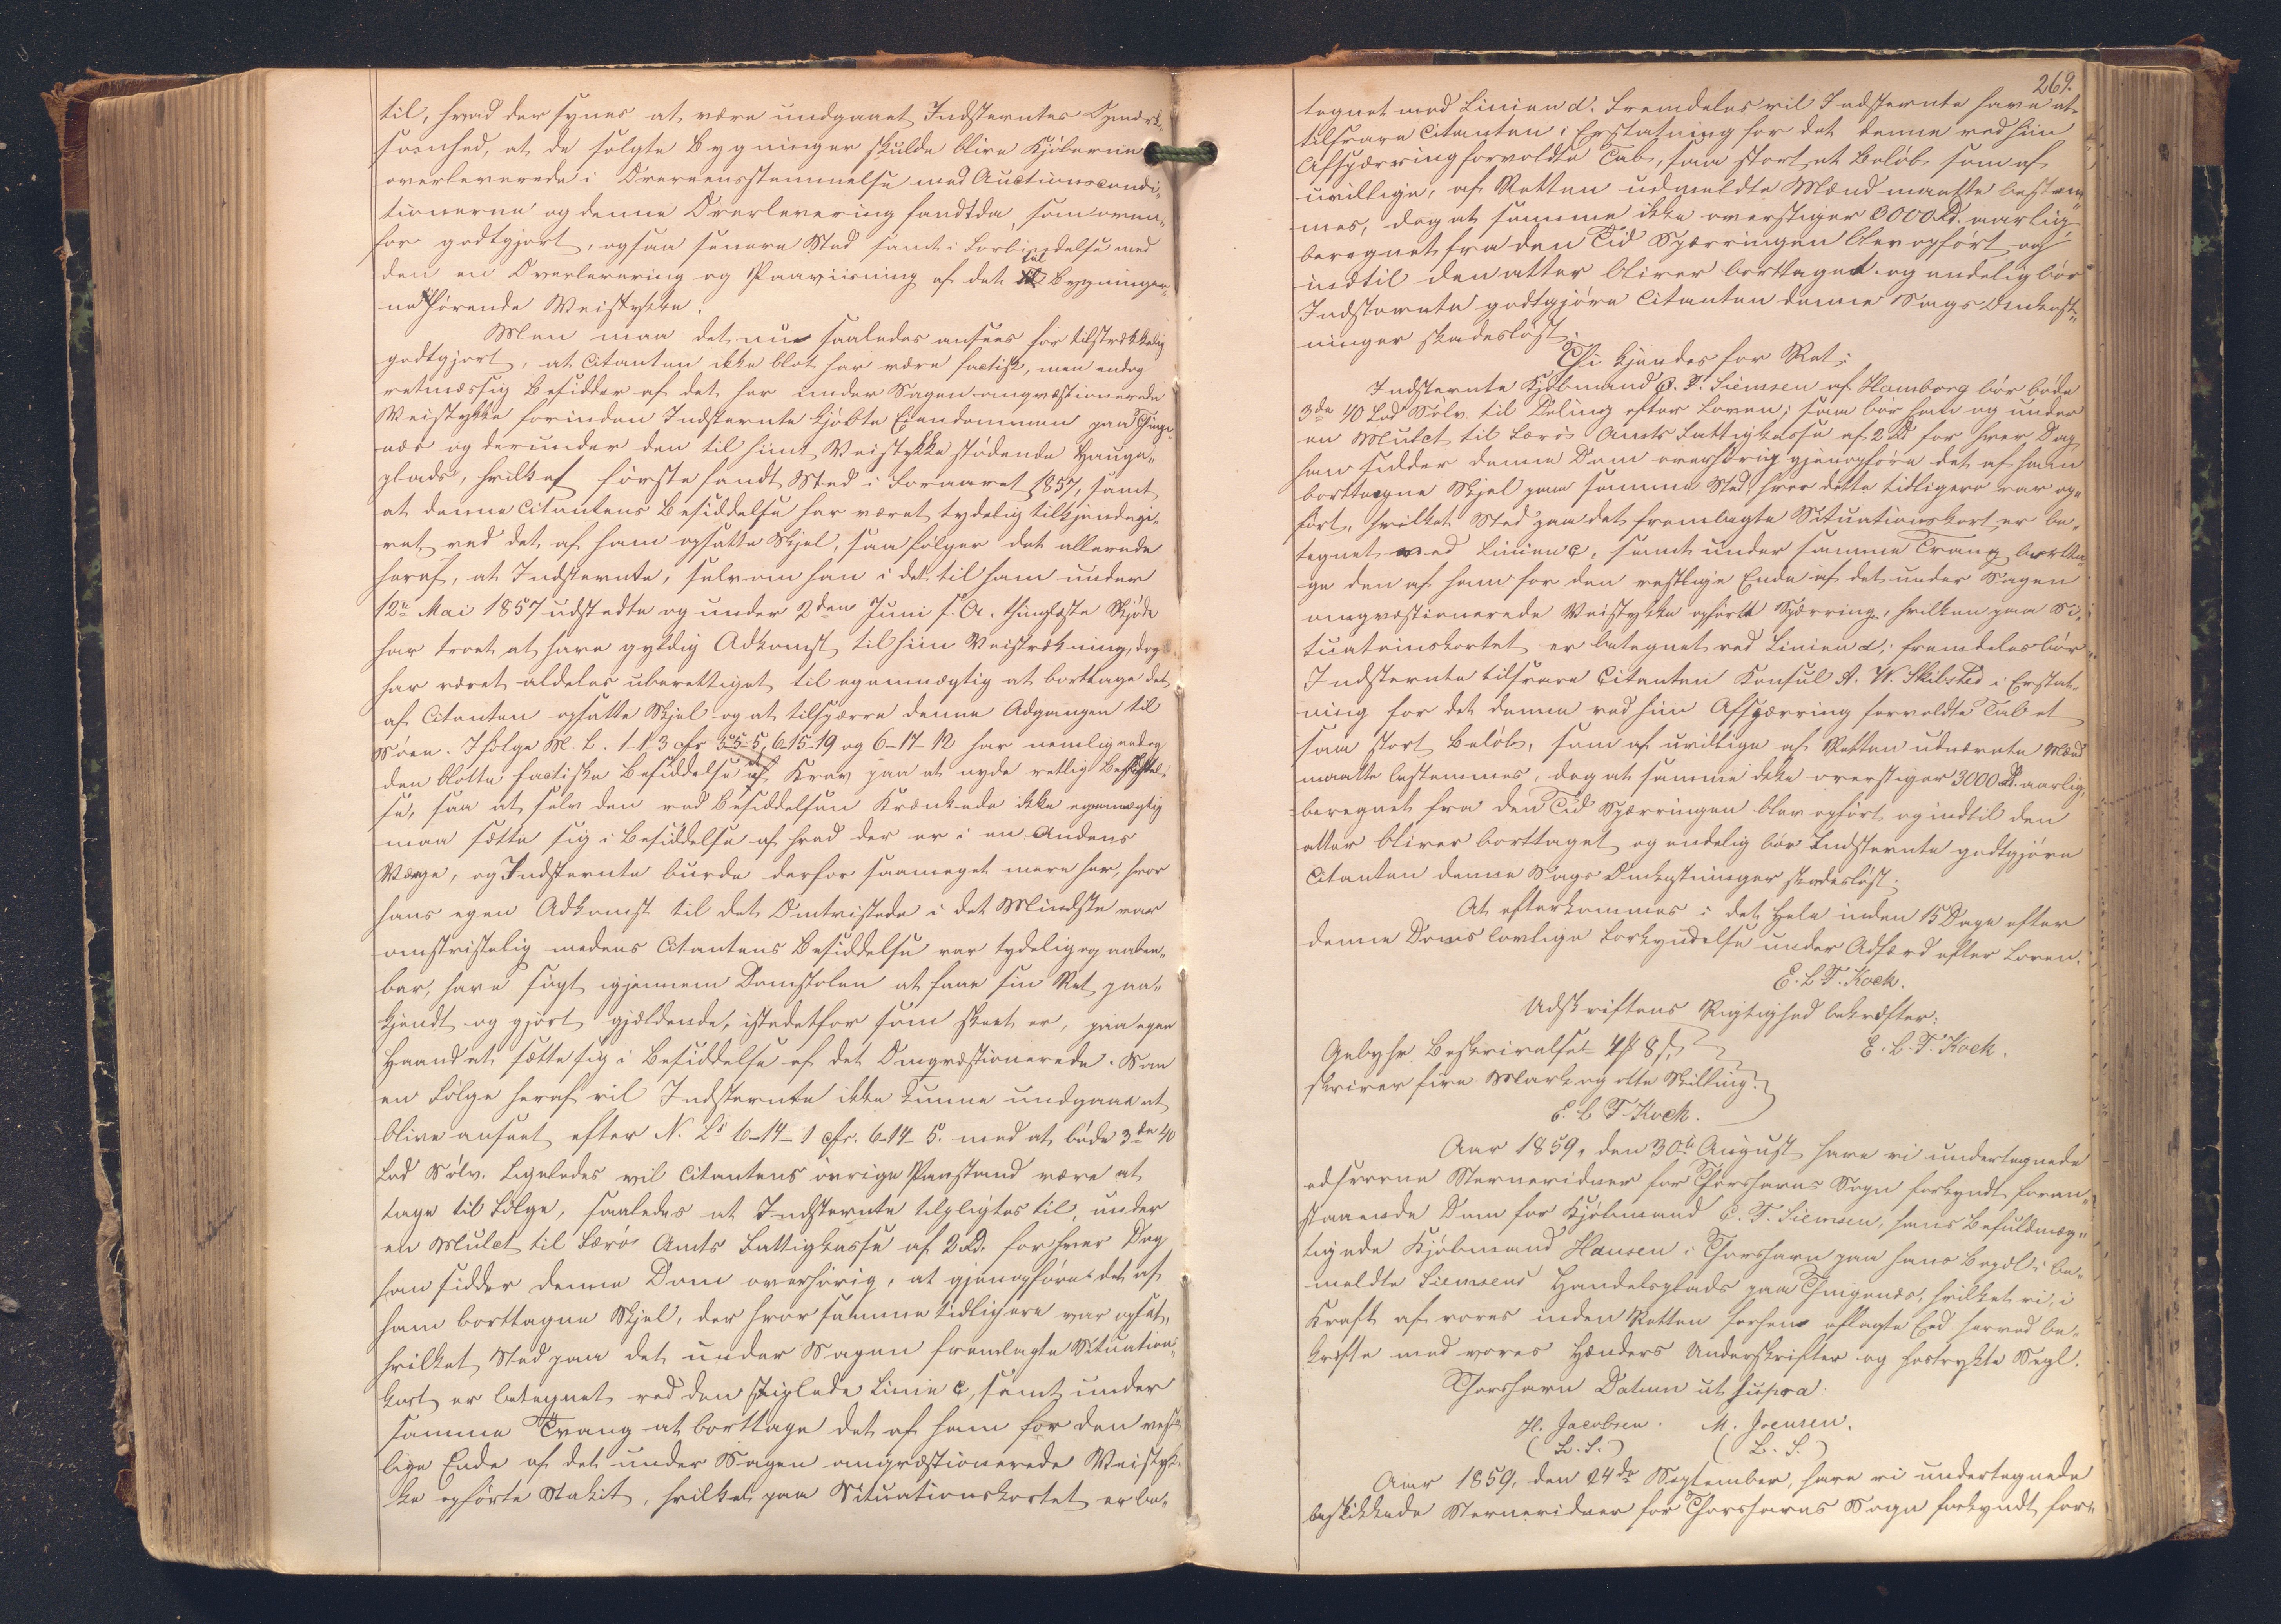 til, hvad der synes at være undgaaet Indstevntes Opmærk-
somhed, at de solgte Bygninger skulde blive Kjøberne
overleverede i Overeensstemmelse med Auctionscondi-
tionerne og denne Overlevering fandt da, som oven-
for godtgjort, ogsaa senere Sted samt i Forbindelse med
den en Overlevering og Paaviisning af det til Bygninger-
ne hørende Veistykke.
Men maa det nu saaledes ansees for tilstrækkelig
godtgjort, at Citanten ikke blot har være factisk, men endog
retmæssig Besidder af det her under Sagen omqvæstionerede
Veistykke forinden Indstevnte kjøbte Eiendommen paa Thinge-
næs og derunder den til hiint Veistykke stødende Hauge-
plads, hvilket første fandt Sted i Foraaret 1857, samt
at denne Citantens Besiddelse har været tydelig tilkjendegi-
vet ved det af ham opsatte Skjel, saa følger det allerede
heraf, at Indstevnte, selv om han i det til ham under
12te Mai 1857 udstedte og under 2den Juni s. A. thinglæste Skjøde
har troet at have gyldig Adkomst til hiin Veistrækning, dog
har været aldeles uberettiget til egenmægtig at borttage det
af Citanten opsatte Skjel og at tilspærre denne Adgangen til
Søen. Ifølge N. L. 1-1-3 cfr 5-5-5, 6-15-19 og 6-17-12 har nemlig endog
den blotte factiske Besiddelse af Krav paa at nyde retlig Beskyttel-
se, saa at selv den ved Besiddelsen Krænkede ikke egenmægtig
maa sætte sig i Besiddelse af hvad der er i en Andens
Værge, og Indstevnte burde derfor saameget mere her, hvor
hans egen Adkomst til det Omtvistede i det Mindste var
omtvistelig medens Citantens Besiddelse var tydelig og aaben-
bar, have søgt igjennem Domstolen at faae sin Ret paa-
kjendt og gjort gjældende, istedetfor som skeet er, paa egen
Haand at sætte sig i Besiddelse af det Omqvæstionerede. Som
en Følge heraf vil Indstevnte ikke kunne undgaae at
blive anseet efter N. Ls 6-14-1 cfr. 6-14-5. med at bøde 3de 40
Lod Sølv. Ligeledes vil Citantens øvrige Paastand være at
tage til Følge, saaledes at Indstevnte tilpligtes til, under
en Mulct til Færø Amts Fattigkasse af 2 Rd. for hver Dag
han sidder denne Dom overhørig, at gjenopføre det af
ham borttagne Skjel, der hvor samme tidligere var opsat,
hvilket Sted paa det under Sagen fremlagte Situations-
kort er betegnet ved den stiplede Linie c, samt under
samme Tvang at borttage det af ham for den vest-
lige Ende af det under Sagen omqvæstionerede Veistyk-
ke opførte Stakit, hvilket paa Situationskortet er be-
269.
tegnet med Linien d. Fremdeles vil Indstevnte have at
tilsvare Citanten i Erstatning for det denne ved hiin
Afspærring forvoldte Tab, saa stort et Beløb som af
uvillige, af Retten udmeldte Mænd maatte bestem-
mes, dog at samme ikke overstiger 3000 Rd. aarlig
beregnet fra den Tid Spærringen blev opført og
indtil den atter bliver borttaget og endelig bør
Indstevnte godtgjøre Citanten denne Sags Omkost-
ninger skadesløst.
Thi kjendes for Ret:
Indstevnte Kjøbmand C. F. Siemsen af Hamborg bør bøde
3de 40 Lod Sølv til Deling efter Loven; saa bør han og under
en Mulct til Færø Amts Fattigkasse af 2 Rd for hver Dag
han sidder denne Dom overhørig gjenopføre det af ham
borttagne Skjel paa samme Sted, hvor dette tidligere var op-
ført, hvilket Sted paa det fremlagte Situationskort er be-
tegnet med Linien c, samt under samme Tvang bortta-
ge den af ham for den vestlige Ende af det under Sagen
omqvæstionerede Veistykke opførte Spærring, hvilken paa Si-
tuationskortet er betegnet ved Linien d; fremdeles bør
Indstevnte tilsvare Citanten Konsul A. W. Skibsted i Erstat-
ning for det denne ved hiin Afspærring forvoldte Tab et
saa stort Beløb, som af uvillige af Retten udnævnte Mænd
maatte bestemmes, dog at samme ikke overstiger 3000 Rd. aarlig,
beregnet fra den Tid Spærringen blev opført og indtil den
atter bliver borttaget og endelig bør Indstevnte godtgjøre
Citanten denne Sags Omkostninger skadesløst.
At efterkommes i det Hele inden 15 Dage efter
denne Doms lovlige Forkyndelse under Adfærd efter Loven.
E. L. F. Koch.
Udskriftens Rigtighed bekræfter:
Gebyhr Beskrivelse 4 # 8 s,
E. L. F. Koch.
skriver fire Mark og otte Skilling.
E. L. F. Koch.
Aar 1859, den 30te August have vi undertegnede
edsvorne Stevnevidner for Thorshavns Sogn forkyndt foran-
staaende Dom for Kjøbmand C. F. Siemsen, hans Befuldmæg-
tigede Kjøbmand Hansen i Thorshavn paa hans Bopæl i be-
meldte Siemsens Handelsplads paa Thingenæs, hvilket vi, i
Kraft af vores inden Retten forhen aflagte Eed herved be-
kræfte med vores Hænders Underskrifter og hostrykte Segl.
Thorshavn Datum ut supra.
H. Jacobsen. M. Joensen.
(L. S.) (L. S.)
Aar 1859, den 24de September, have vi undertegnede
beskikkede Stevnevidner for Thorshavns Sogn forkyndt for-